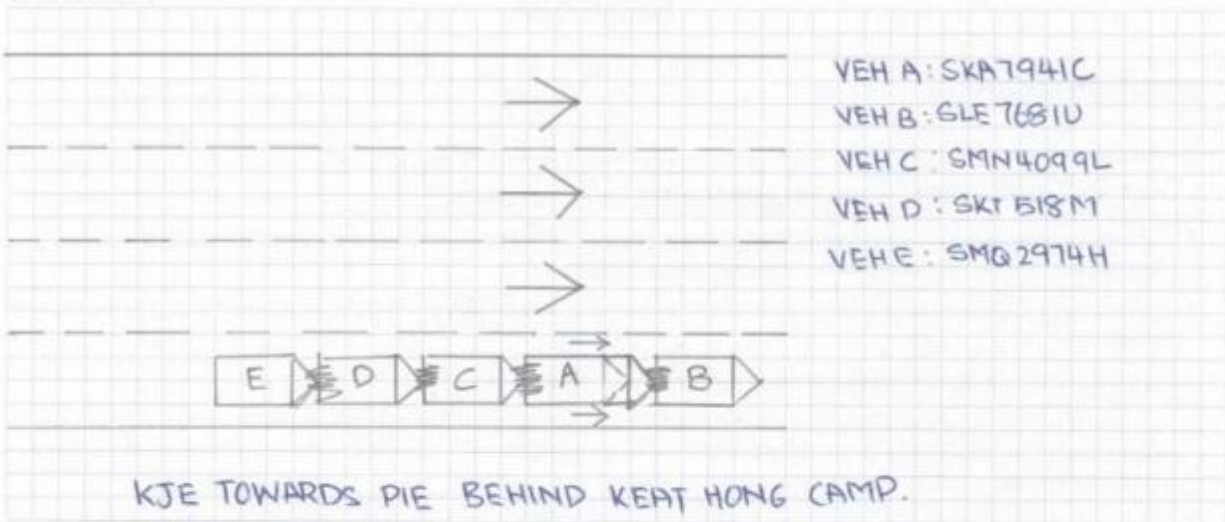 VEH A: SKA7941C
VEH B: SLE7681U
VEH C: SMN4099L
VEH D: SKT 518M
VEH E: SMQ2974H
E D C A B
KJE TOWARDS PIE BEHIND KEAT HONG CAMP.